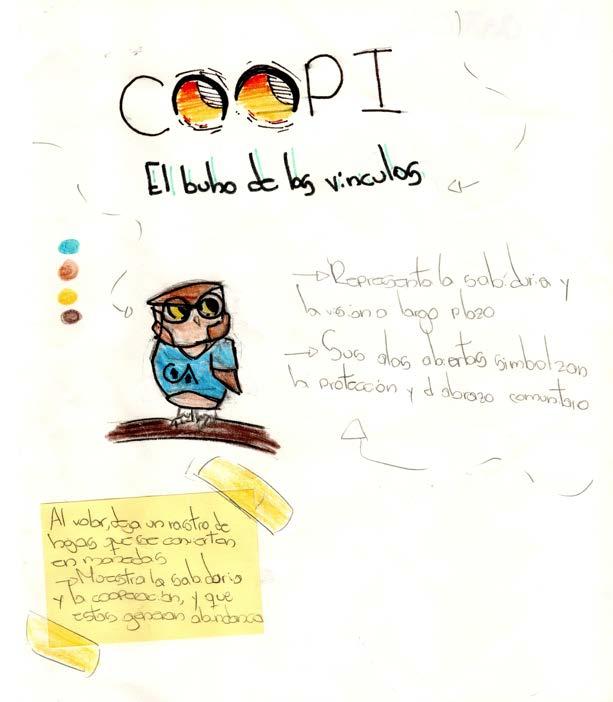 COOPI
El buho de los vinculos
→Representa la sabiduria y
la vision a largo plazo
→Sus alas abiertas simbolizan
la protección y el abrazo comunitario
OA
Al volar, deja un rastro de
hojas que se convierten
en monedas
→Muestra la sabiduria
y la cooperación, y que
estas generan abundancia